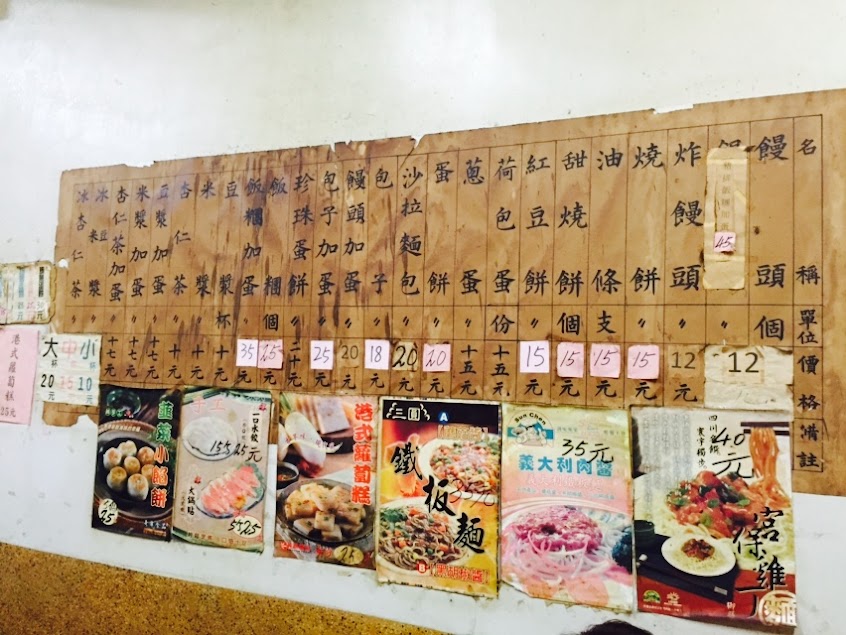 名稱 單位 價格 備註
饅頭 個 12
45
炸饅頭 〃 12元
燒餅 〃 15元
油條 支 15元
甜燒餅 個 15元
紅豆餅 〃 15元
荷包蛋 份 十五元
蔥蛋 〃 十五元
蛋餅 〃 20元
沙拉麵包 〃 20元
包子 〃 18元
饅頭加蛋 〃 20元
包子加蛋 〃 25元
珍珠蛋餅 〃 二十元
飯糰 個 25元
飯糰加蛋 〃 35元
豆漿 杯 十元
米漿 〃 十元
杏仁茶 〃 十元
豆漿加蛋 〃 十七元
米漿加蛋 〃 十七元
杏仁茶加蛋 〃 十七元
冰米豆漿 〃
冰杏仁茶 〃
小杯 10元
中杯 15元
大杯 20元
港式蘿蔔糕
25元
韭菜小餡餅
25
手工
一口水餃
15个25元
大鍋貼
5个25
港式蘿蔔糕
25元
三圓
A
鐵板麵
35元
B 黑胡椒醬
Sun Chef
35元
義大利肉醬
四川金饌
40元
宮保雞丁
麵